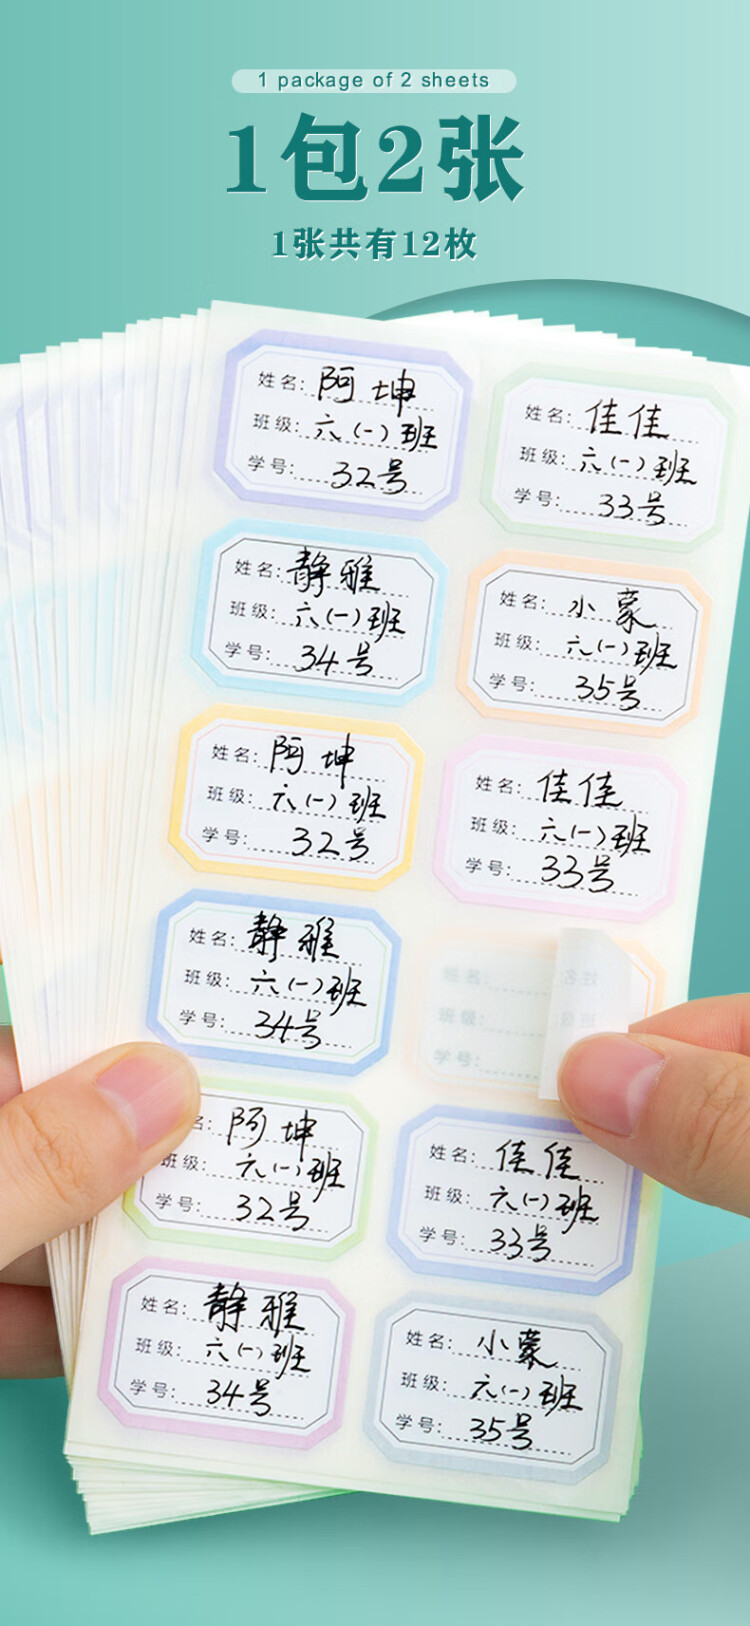 1 package of 2 sheets
1包2张
1张共有12枚
姓名: 阿坤
班级: 六(一)班
学号: 32号
姓名: 佳佳
班级: 六(一)班
学号: 33号
姓名: 静雅
班级: 六(一)班
学号: 34号
姓名: 小蒙
班级: 六(一)班
学号: 35号
姓名: 阿坤
班级: 六(一)班
学号: 32号
姓名: 佳佳
班级: 六(一)班
学号: 33号
姓名: 静雅
班级: 六(一)班
学号: 34号
姓名:
班级:
学号:
名: 阿坤
班级: 六(一)班
学号: 32号
姓名: 佳佳
班级: 六(一)班
学号: 33号
姓名: 静雅
班级: 六(一)班
学号: 34号
姓名: 小蒙
班级: 六(一)班
学号: 35号